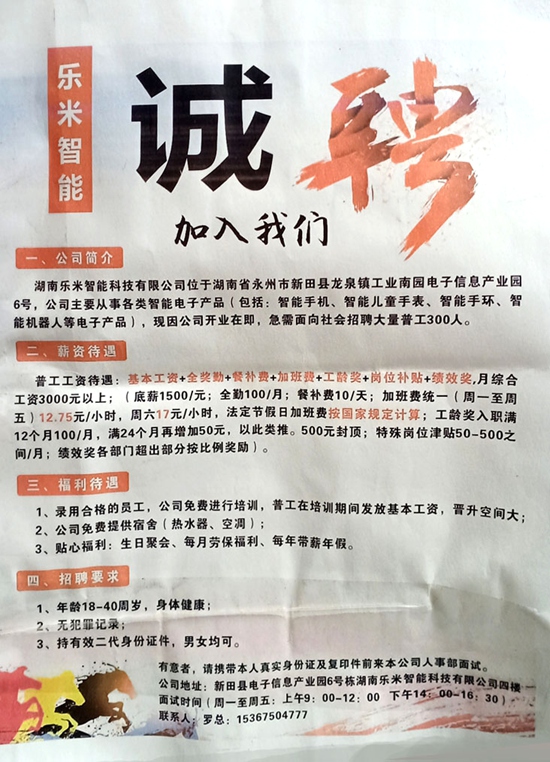 乐米智能
诚聘
加入我们
一、公司简介
湖南乐米智能科技有限公司位于湖南省永州市新田县龙泉镇工业南园电子信息产业园
6号，公司主要从事各类智能电子产品（包括：智能手机、智能儿童手表、智能手环、智
能机器人等电子产品），现因公司开业在即，急需面向社会招聘大量普工300人。
二、薪资待遇
普工工资待遇：基本工资+全奖勤+餐补费+加班费+工龄奖+岗位补贴+绩效奖,月综合
工资3000元以上；（底薪1500/元；全勤100/月；餐补费10/天；加班费统一（周一至周
五）12.75元/小时，周六17元/小时，法定节假日加班费按国家规定计算；工龄奖入职满
12个月100/月，满24个月再增加50元，以此类推。500元封顶；特殊岗位津贴50-500之
间/月；绩效奖各部门超出部分按比例奖励）。
三、福利待遇
1、录用合格的员工，公司免费进行培训，普工在培训期间发放基本工资，晋升空间大；
2、公司免费提供宿舍（热水器、空凋）；
3、贴心福利：生日聚会、每月劳保福利、每年带薪年假。
四、招聘要求
1、年龄18-40周岁，身体健康；
2、无犯罪记录；
3、持有效二代身份证件，男女均可。
有意者，请携带本人真实身份证及复印件前来本公司人事部面试。
公司地址：新田县电子信息产业园6号栋湖南乐米智能科技有限公司四楼
面试时间（周一至周五：上午9：00-12：00 下午14：00-16：30）
联系人：罗总：15367504777